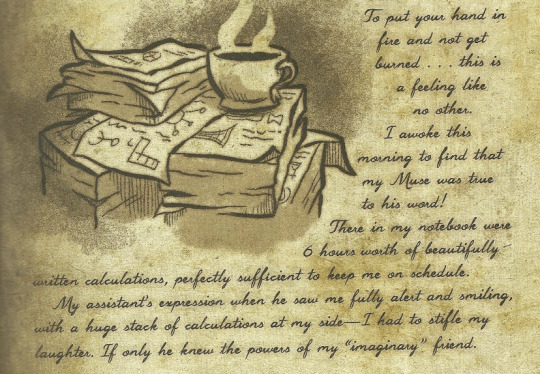 To put your hand in
fire and not get
burned . . . this is
a feeling like
no other.
I awoke this
morning to find that
my Muse was true
to his word!
There in my notebook were
6 hours worth of beautifully-
written calculations, perfectly sufficient to keep me on schedule.
My assistant's expression when he saw me fully alert and smiling,
with a huge stack of calculations at my side—I had to stifle my
laughter. If only he knew the powers of my "imaginary" friend.